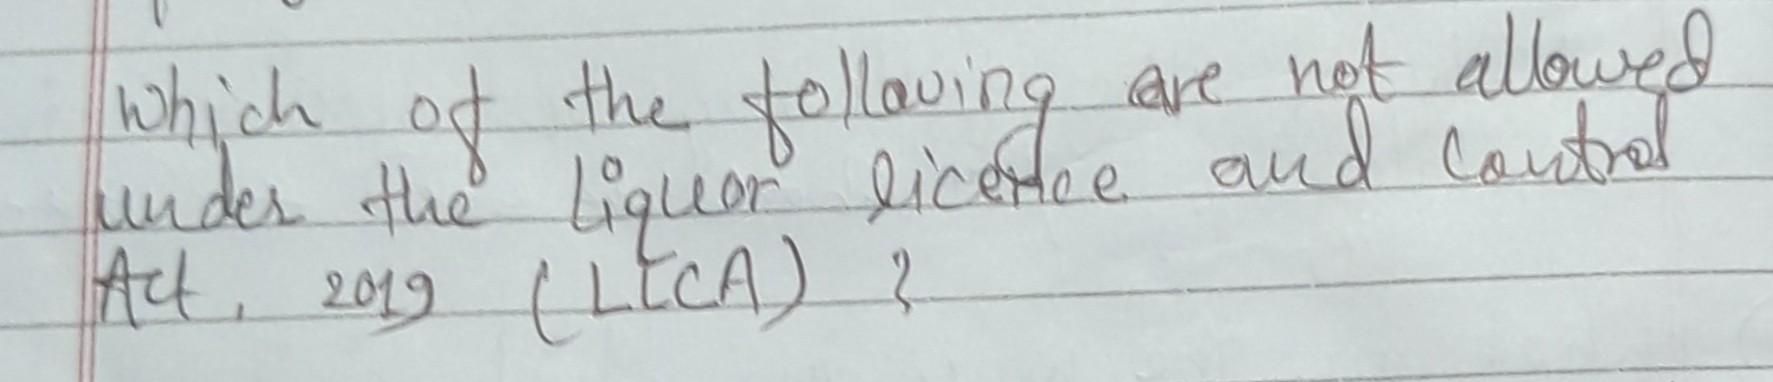 Which of the following are not allowed
under the Liquor licence and Control
Act, 2019 (LLCA) ?